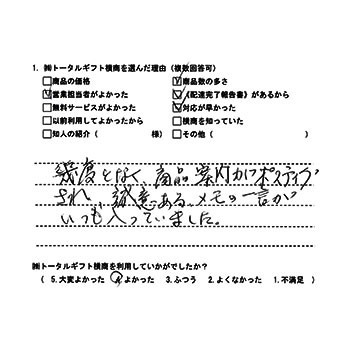 1. ㈱トータルギフト横商を選んだ理由（複数回答可）
□商品の価格 ☑商品数の多さ
☑営業担当者がよかった ☑《配達完了報告書》があるから
□無料サービスがよかった ☑対応が早かった
□以前利用してよかったから □横商を知っていた
□知人の紹介（ 様） □その他（ ）
幾度となく、商品案内がポスティング
され、誠意あるメモの一言が
いつも入っていました。
㈱トータルギフト横商を利用していかがでしたか？
（ 5.大変よかった 4.よかった 3.ふつう 2.よくなかった 1.不満足 ）